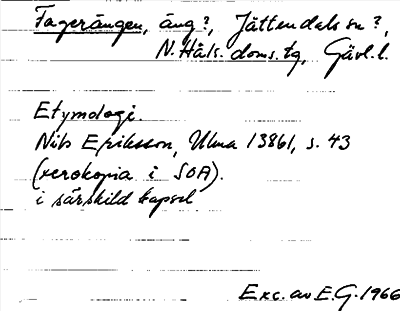 Fagerängen, äng?, Jättendals sn?,
N. Häls. doms. tg, Gävl. l.
Etymologi.
Nils Eriksson, Ulma 13861, s. 43
(xerokopia i SOA).
i särskild kapsel
Exc. av E.G. 1966